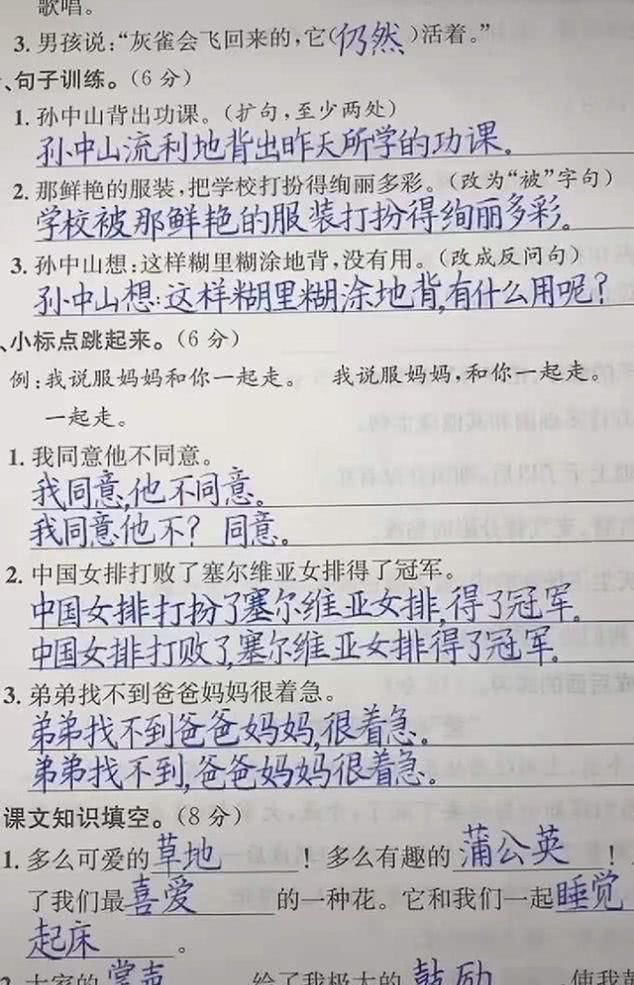 歌唱。
3. 男孩说：“灰雀会飞回来的，它（仍然）活着。”
、句子训练。（6分）
1. 孙中山背出功课。（扩句，至少两处）
孙中山流利地背出昨天所学的功课。
2. 那鲜艳的服装，把学校打扮得绚丽多彩。（改为“被”字句）
学校被那鲜艳的服装打扮得绚丽多彩。
3. 孙中山想：这样糊里糊涂地背，没有用。（改成反问句）
孙中山想：这样糊里糊涂地背，有什么用呢？
、小标点跳起来。（6分）
例：我说服妈妈和你一起走。 我说服妈妈，和你一起走。
一起走。
1. 我同意他不同意。
我同意，他不同意。
我同意他不？同意。
2. 中国女排打败了塞尔维亚女排得了冠军。
中国女排打扮了塞尔维亚女排，得了冠军。
中国女排打败了，塞尔维亚女排得了冠军。
3. 弟弟找不到爸爸妈妈很着急。
弟弟找不到爸爸妈妈，很着急。
弟弟找不到，爸爸妈妈很着急。
课文知识填空。（8分）
1. 多么可爱的草地！多么有趣的蒲公英！
了我们最喜爱的一种花。它和我们一起睡觉
起床。
2. 大家的掌声 给了我极大的鼓励，使我